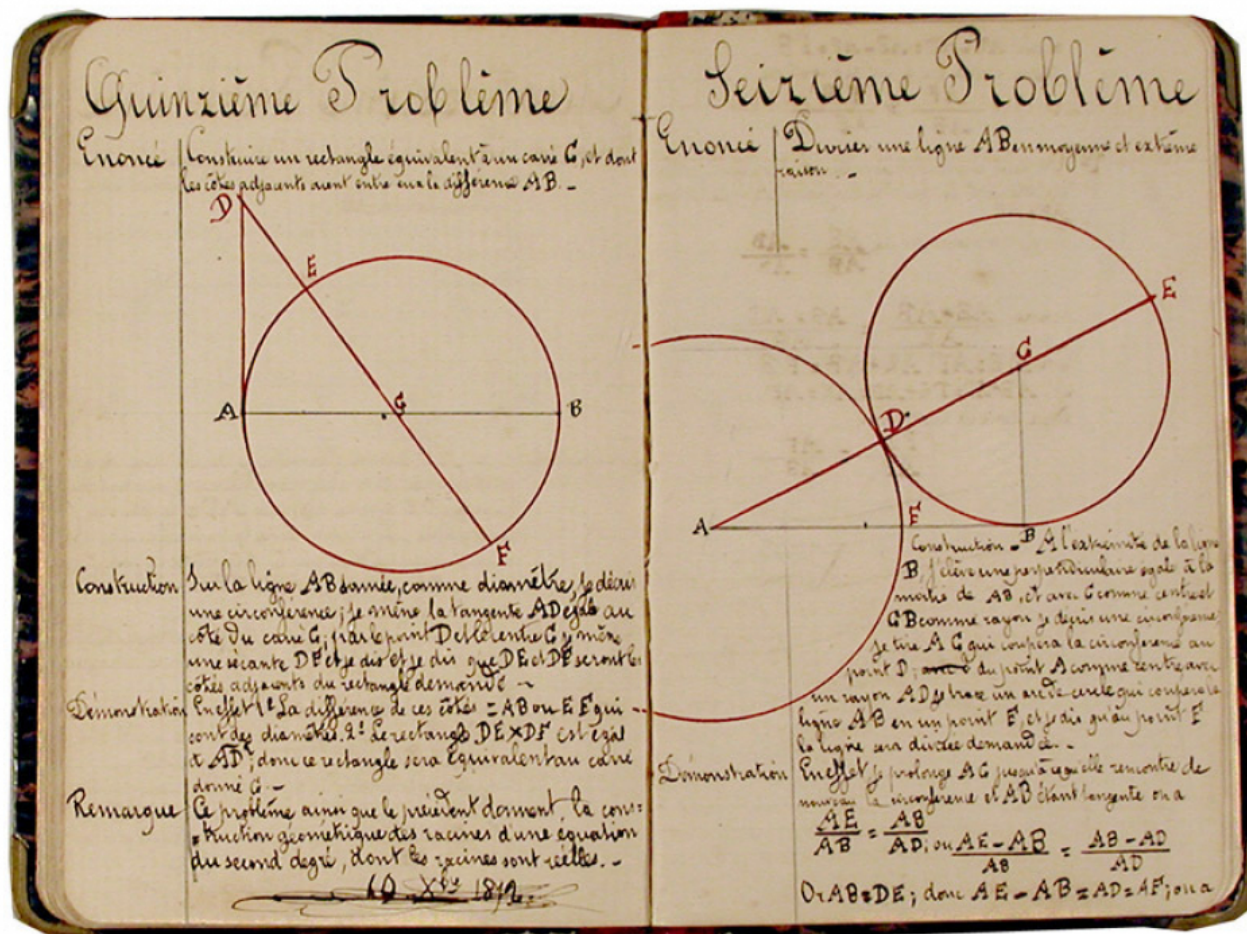 Quinzième Problème
Enoncé Construire un rectangle équivalent à un carré C, et dont
les côtés adjacents aient entre eux la différence AB. _
D
E
A
C
B
F
Construction Sur la ligne AB donnée, comme diamètre, je décris
une circonférence; je mène la tangente AD égale au
côté du carré C; par le point D et le centre C je mène
une sécante DF et je dis et je dis que DE et DF seront les
côtés adjacents du rectangle demandé _
Démonstration En effet 1º La différence de ces côtés = AB ou EF qui
sont des diamètres. 2º Le rectangle DE × DF est égal
à AD²; donc ce rectangle sera équivalent au carré
donné C. _
Remarque Ce problème ainsi que le précédent donnent, la cons=
=truction géométrique des racines d'une équation
du second degré, dont les racines sont réelles. _
10 Xbre
Seizième Problème
Enoncé Diviser une ligne AB en moyenne et extrême
raison. _
E
C
D
A
F
B
Construction _ A l'extrémité de la ligne
B, j'élève une perpendiculaire égale à la
moitié de AB, et avec C comme centre et
CB comme rayon je décris une circonférence
je tire AC qui coupera la circonférence au
point D; du point A comme centre avec
un rayon AD je trace un arc de cercle qui coupera la
ligne AB en un point F, et je dis qu'au point F
la ligne sera divisée demandée. _
Démonstration En effet, je prolonge AC jusqu'à ce qu'elle rencontre de
nouveau la circonférence et AB étant tangente on a
AE/AB = AB/AD; ou AE-AB/AB = AB-AD/AD
Or AB=DE; donc AE-AB=AD=AF; on a